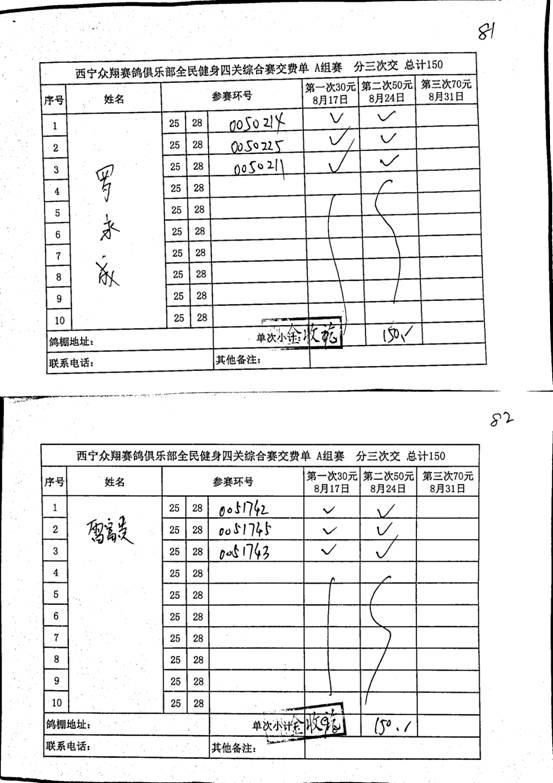 81
西宁众翔赛鸽俱乐部全民健身四关综合赛交费单 A组赛 分三次交 总计150
序号 姓名 参赛环号 第一次30元 8月17日 第二次50元 8月24日 第三次70元 8月31日
1 25 28 0050214 ✓ ✓
2 25 28 0050225 ✓ ✓
3 25 28 0050211 ✓ ✓
4 25 28
5 25 28
6 25 28
7 25 28
8 25 28
9 25 28
10 25 28
罗永
鸽棚地址: 单次小 150.
联系电话: 其他备注:
82
西宁众翔赛鸽俱乐部全民健身四关综合赛交费单 A组赛 分三次交 总计150
序号 姓名 参赛环号 第一次30元 8月17日 第二次50元 8月24日 第三次70元 8月31日
1 25 28 0051742 ✓ ✓
2 25 28 0051745 ✓ ✓
3 25 28 0051743 ✓ ✓
4 25 28
5 25 28
6 25 28
7 25 28
8 25 28
9 25 28
10 25 28
鸽棚地址: 单次小计 150.
联系电话: 其他备注: